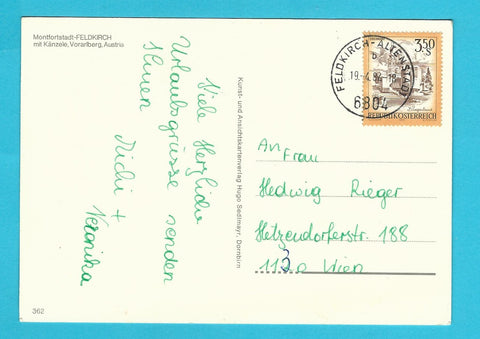 Montfortstadt-FELDKIRCH
mit Känzele, Vorarlberg, Austria
Viele Herzliche
Urlaubsgrüsse senden
Ihnen
Michi +
Veronika
362
Kunst- und Ansichtskartenverlag Hugo Sedlmayr, Dornbirn
FELDKIRCH-ALTENSTADT
b
19.-4.82-18
6804
3.50
S
REPUBLIK ÖSTERREICH
An Frau
Hedwig Rieger
Hetzendorferstr. 188
1130 Wien